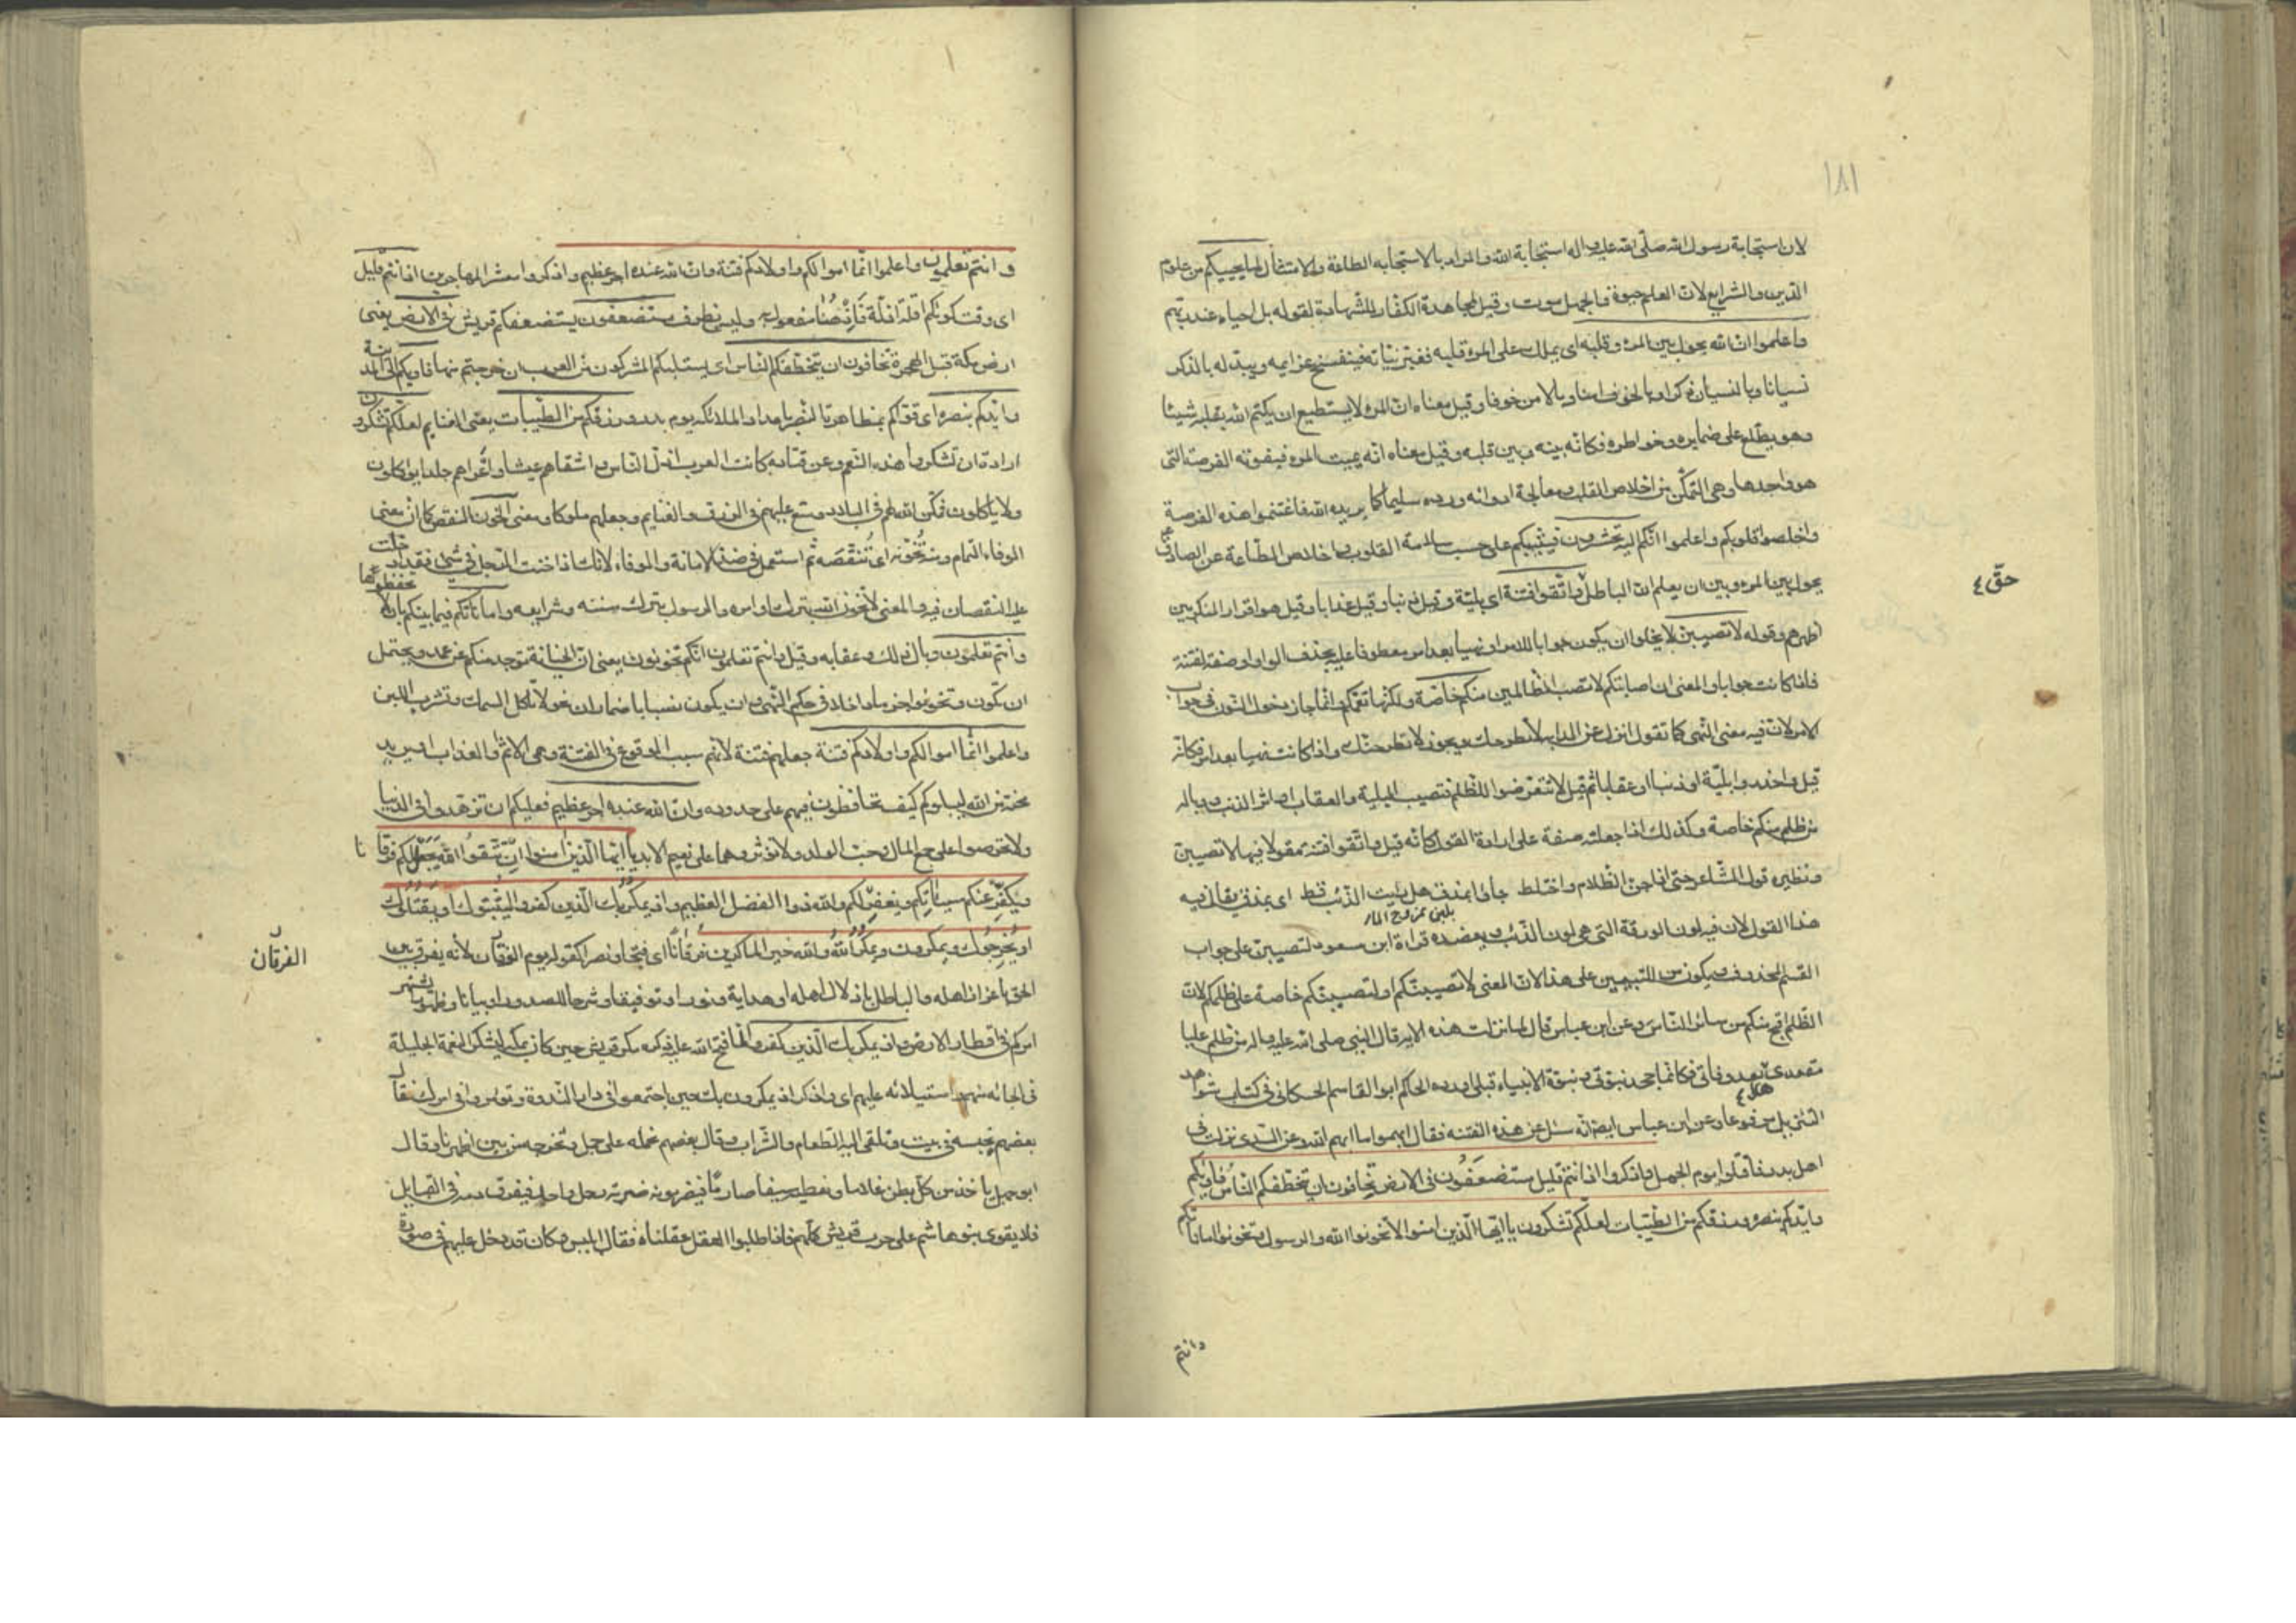 ١٨١
لان استجابة رسول الله صلى الله عليه واله استجابة الله والمراد بالاستجابه الطاعة والامتثال لما يحييكم من علوم
الدين والشرايع لان العلم حيوة والجهل موت وقيل لمجاهدة الكفار للشهادة لقوله بل احياء عند ربهم
واعلموا ان الله يحول بين المرء وقلبه اى يملك على المرء قلبه فيغير نياته فيفسخ عزايمه ويبدله بالذكر
نسيانا وبالنسيان ذكرا وبالخوف امنا وبالامن خوفا وقيل معناه ان المرء لا يستطيع ان يكتم الله بقلبه شيئا
وهو يطلع على ضمايره وخواطره فكانه بينه وبين قلبه وقيل معناه انه يميت المرء فيفوته الفرصة التى
هو واجدها وهى التمكن من اخلاص القلب ومعالجة ادوائه ورده سليما كما يريده الله فاغتنموا هذه الفرصة
واخلصوا قلوبكم واعلموا انكم اليه تحشرون فيثيبكم على حسب سلامة القلوب واخلاص الطاعة عن الصادق ع
يحول بين المرء وبين ان يعلم ان الباطل واتقوا فتنة اى بلية وقيل ذنبا وقيل عذابا وقيل هو اقرار المنكر بين
حق ٤
اظهرهم وقوله لا تصيبن لا يخلوا ان يكون جوابا للامر او نهيا بعد امر معطوفا عليه بحذف الواو او صفة لفتنة
فاذا كانت جوابا والمعنى ان اصابتكم لا تصب الظالمين منكم خاصة ولكنها تعمكم وانما جاز دخول النون فى جواب
الامر لان فيه معنى النهى كما تقول انزل عن الدابة لا تطرحك ويجوز لا تطرحنك واذا كانت نهيا بعد امر فكانه
قيل واحذروا بلية او ذنبا او عقابا ثم قيل لا تتعرضوا للظلم فتصيب البلية والعقاب او اثر الذنب ووباله
من ظلم منكم خاصة وكذلك اذا جعلته صفة على ارادة القول كانه قيل واتقوا فتنة مقولا فيها لا تصيبن
ونظيره قول الشاعر حتى اذا جن الظلام واختلط جاؤا بمذق هل رايت الذئب قط اى بمذق يقال فيه
بلبن ممزوج الماء
هذا القول لان فيه لون الورقة التى هى لون الذئب ويعضده قراءة ابن مسعود لتصيبن على جواب
القسم المحذوف ويكون من للتبيين على هذا لان المعنى لا تصيبنكم او لتصيبنكم خاصة على ظلمكم لان
الظلم اقبح منكم من سائر الناس وعن ابن عباس قال لما نزلت هذه الاية قال النبى صلى الله عليه واله من ظلم عليا
مقعدى هذا بعد وفاتى فكانما جحد نبوتى ونبوة الانبياء قبلى اورده الحاكم ابو القاسم الحسكانى فى كتاب شواهد
التنزيل مرفوعا وعن ابن عباس ايضا انه سئل عن هذه الفتنه فقال ابهموا ما ابهم الله وعن السدى نزلت فى
اهل بدر فاقتتلوا يوم الجمل واذكروا اذ انتم قليل مستضعفون فى الارض تخافون ان يتخطفكم الناس فاويكم
وايدكم بنصره ورزقكم من الطيبات لعلكم تشكرون يا ايها الذين امنوا لا تخونوا الله والرسول وتخونوا اماناتكم
وانتم
وانتم تعلمون واعلموا انما اموالكم واولادكم فتنة وان الله عنده اجر عظيم واذكروا معشر المهاجرين اذ انتم قليل
اى وقت كونكم اقلة اذلة فاذ هنا مفعول به وليس بظرف مستضعفون يستضعفكم قريش فى الارض يعنى
ارض مكة قبل الهجرة تخافون ان يتخطفكم الناس اى يستلبكم المشركون من العرب ان خرجتم منها فاويكم الى المدينة
وايدكم بنصره اى قواكم بمظاهرة الانصر بامداد الملائكه يوم بدر ورزقكم من الطيبات يعنى الغنايم لعلكم تشكرون
ارادة ان تشكروا هذه النعم وعن قتادة كانت العرب اذل الناس واشقاهم عيشا واعراهم جلدا يؤكلون
ولا ياكلون فمكن الله لهم فى البلاد ووسع عليهم فى الرزق والغنايم وجعلهم ملوكا ومعنى الخون النقص كما ان معنى
الوفاء التمام ومنه تخونه اى تنقصه ثم استعمل فى ضد الامانة والوفاء لانك اذا خنت الرجل فى شئ فقد ادخلت
عليه النقصان فيه والمعنى لا تخونوا الله بترك اوامره والرسول بترك سننه وشرايعه واماناتكم فيما بينكم بان لا تحفظوها
وانتم تعلمون وبال ذلك وعقابه وقيل وانتم تعلمون انكم تخونون يعنى ان الخيانة توجد منكم عن عمد ويحتمل
ان تكون وتخونوا جزما داخلا فى حكم النهى وان يكون نصبا باضمار ان نحو لا تاكل السمك وتشرب اللبن
واعلموا انما اموالكم واولادكم فتنة جعلهم فتنة لانهم سبب الوقوع فى الفتنة وهى الاثم والعذاب او يريد
محنة من الله ليبلوكم كيف تحافظون فيهم على حدوده وان الله عنده اجر عظيم فعليكم ان تزهدوا فى الدنيا
ولا تحرصوا على جمع المال وحب الولد ولا تؤثروهما على نعيم الابد يا ايها الذين امنوا ان تتقوا الله يجعل لكم فرقانا
ويكفر عنكم سيئاتكم ويغفر لكم والله ذوا الفضل العظيم واذ يمكر بك الذين كفروا ليثبتوك او يقتلوك
او يخرجوك ويمكرون ويمكر الله والله خير الماكرين فرقانا اى فتحا ونصرا كقوله يوم الفرقان لانه يفرق بين
الفرقان
الحق باعزاز اهله والباطل باذلال اهله او هداية ونورا وتوفيقا وشرحا للصدور او بيانا وظهورا يشهر
امركم فى اقطار الارض واذ يمكر بك الذين كفروا لما فتح الله عليه ذكره مكر قريش حين كان بمكة ليشكر النعمة الجليلة
فى انجائه منهم واستيلائه عليهم اى واذكر اذ يمكرون بك حين اجتمعوا فى دار الندوة وتوامروا فى امرك فقال
بعضهم نحبسه فى بيت ونلقى اليه الطعام والشراب وقال بعضهم نحمله على جمل ونخرجه من بين اظهرنا وقال
ابو جهل ياخذ من كل بطن غلاما ونعطيه سيفا صارما فيضربونه ضربة رجل واحد فيتفرق دمه فى القبايل
فلا يقوى بنو هاشم على حرب قريش كلهم فاذا طلبوا العقل عقلناه فقال ابليس وكان قد دخل عليهم فى صورة